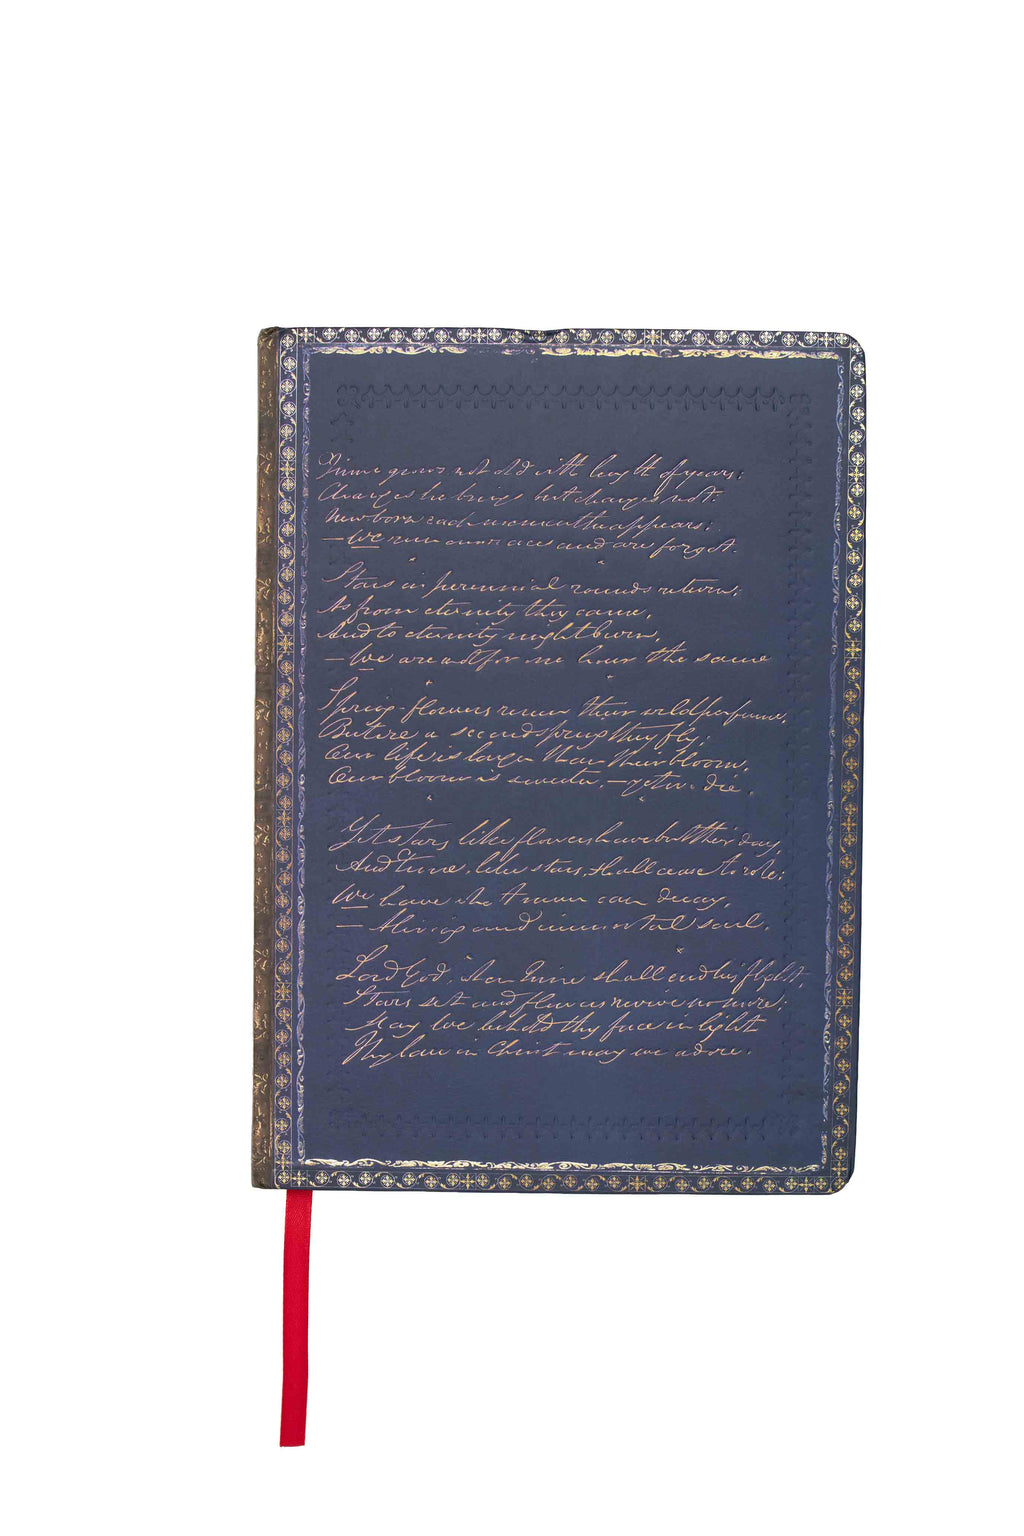 Time grows not old with length of years;
Changes he brings but changes not;
New born each moment he appears;
— We run our race and are forgot.
Stars in perennial rounds return;
As from eternity they came,
And to eternity might burn,
— We are not for one hour the same
Spring-flowers renew their wild perfume,
But ere a second spring they fly;
Our life is longer than their bloom,
Our bloom is sweeter, — yet we die.
Yet stars, like flowers have but their day,
And time, like stars, shall cease to roll;
We have what never can decay,
— A living and immortal soul.
Lord God, when time shall end his flight,
Stars set and flowers revive no more;
May we behold thy face in light
Thy law in Christ may we adore.